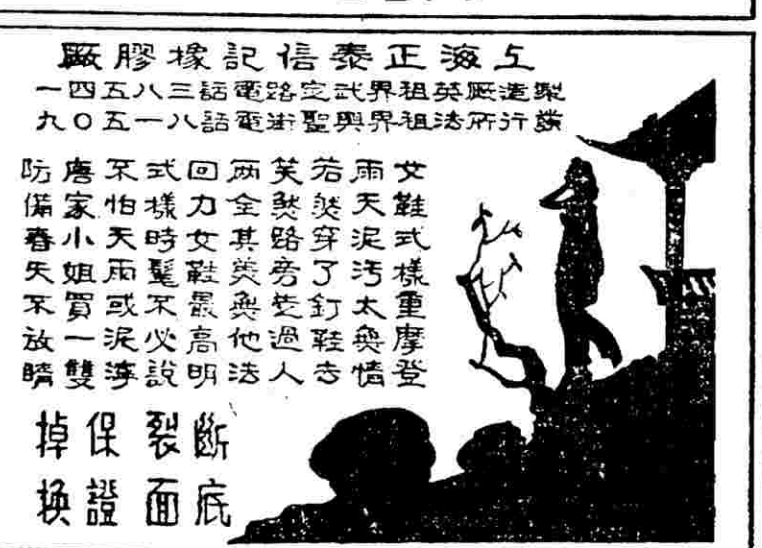 上海正泰信記橡膠廠
製造廠英租界武定路電話三八五四一
發行所法租界興聖街電話八一五〇九
女鞋式樣重摩登
雨天泥污太無情
若然穿了釘鞋去
笑煞路旁些過人
兩全其美無他法
回力女鞋最高明
式樣時髦不必說
不怕天雨或泥濘
唐家小姐買一雙
防備春天不放晴
斷底
裂面
保證
掉換